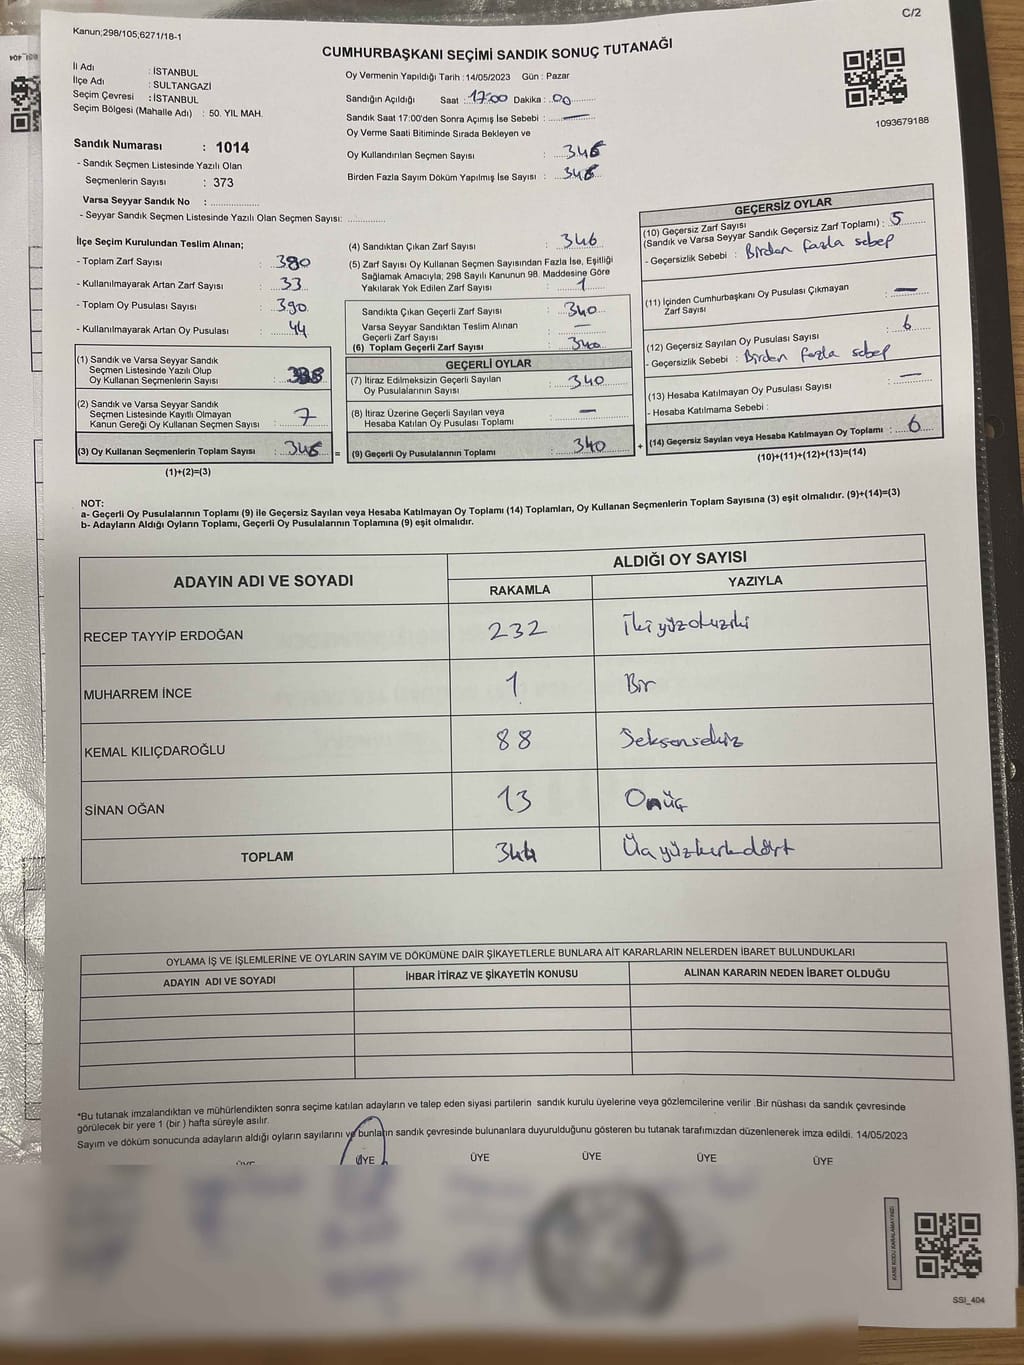 C/2
Kanun;298/105;6271/18-1
CUMHURBAŞKANI SEÇİMİ SANDIK SONUÇ TUTANAĞI
İl Adı : İSTANBUL
İlçe Adı : SULTANGAZİ
Seçim Çevresi : İSTANBUL
Seçim Bölgesi (Mahalle Adı) : 50. YIL MAH.
Oy Vermenin Yapıldığı Tarih :14/05/2023 Gün : Pazar
Sandığın Açıldığı Saat :17:00 Dakika : 00
Sandık Saat 17:00'den Sonra Açımış İse Sebebi : —
Oy Verme Saati Bitiminde Sırada Bekleyen ve
Oy Kullandırılan Seçmen Sayısı : 346
Birden Fazla Sayım Döküm Yapılmış İse Sayısı : 346
1093679188
Sandık Numarası : 1014
- Sandık Seçmen Listesinde Yazılı Olan
Seçmenlerin Sayısı : 373
Varsa Seyyar Sandık No :
- Seyyar Sandık Seçmen Listesinde Yazılı Olan Seçmen Sayısı:
İlçe Seçim Kurulundan Teslim Alınan;
- Toplam Zarf Sayısı : 380
- Kullanılmayarak Artan Zarf Sayısı : 33
- Toplam Oy Pusulası Sayısı : 390
- Kullanılmayarak Artan Oy Pusulası : 44
(1) Sandık ve Varsa Seyyar Sandık
Seçmen Listesinde Yazılı Olup
Oy Kullanan Seçmenlerin Sayısı :
(2) Sandık ve Varsa Seyyar Sandık
Seçmen Listesinde Kayıtlı Olmayan
Kanun Gereği Oy Kullanan Seçmen Sayısı : 7
(3) Oy Kullanan Seçmenlerin Toplam Sayısı : 346 =
(1)+(2)=(3)
(4) Sandıktan Çıkan Zarf Sayısı : 346
(5) Zarf Sayısı Oy Kullanan Seçmen Sayısından Fazla İse, Eşitliği
Sağlamak Amacıyla, 298 Sayılı Kanunun 98. Maddesine Göre
Yakılarak Yok Edilen Zarf Sayısı : 1
Sandıkta Çıkan Geçerli Zarf Sayısı : 340
Varsa Seyyar Sandıktan Teslim Alınan
Geçerli Zarf Sayısı : —
(6) Toplam Geçerli Zarf Sayısı : 340
GEÇERLİ OYLAR
(7) İtiraz Edilmeksizin Geçerli Sayılan
Oy Pusulasının Sayısı : 340
(8) İtiraz Üzerine Geçerli Sayılan veya
Hesaba Katılan Oy Pusulası Toplamı : —
(9) Geçerli Oy Pusulalarının Toplamı : 340 +
GEÇERSİZ OYLAR
(10) Geçersiz Zarf Sayısı
(Sandık ve Varsa Seyyar Sandık Geçersiz Zarf Toplamı) : 5
- Geçersizlik Sebebi : Birden fazla sebep
(11) İçinden Cumhurbaşkanı Oy Pusulası Çıkmayan
Zarf Sayısı : —
(12) Geçersiz Sayılan Oy Pusulası Sayısı : 6
- Geçersizlik Sebebi : Birden fazla sebep
(13) Hesaba Katılmayan Oy Pusulası Sayısı : —
- Hesaba Katılmama Sebebi :
(14) Geçersiz Sayılan veya Hesaba Katılmayan Oy Toplamı : 6
(10)+(11)+(12)+(13)=(14)
NOT:
a- Geçerli Oy Pusulalarının Toplamı (9) ile Geçersiz Sayılan veya Hesaba Katılmayan Oy Toplamı (14) Toplamları, Oy Kullanan Seçmenlerin Toplam Sayısına (3) eşit olmalıdır. (9)+(14)=(3)
b- Adayların Aldığı Oyların Toplamı, Geçerli Oy Pusulalarının Toplamına (9) eşit olmalıdır.
ADAYIN ADI VE SOYADI
ALDIĞI OY SAYISI
RAKAMLA YAZIYLA
RECEP TAYYİP ERDOĞAN 232 İkiyüzotuziki
MUHARREM İNCE 1 Bir
KEMAL KILIÇDAROĞLU 88 Seksensekiz
SİNAN OĞAN 13 Onüç
TOPLAM 344 Üçyüzkırkdört
OYLAMA İŞ VE İŞLEMLERİNE VE OYLARIN SAYIM VE DÖKÜMÜNE DAİR ŞİKAYETLERLE BUNLARA AİT KARARLARIN NELERDEN İBARET BULUNDUKLARI
ADAYIN ADI VE SOYADI İHBAR İTİRAZ VE ŞİKAYETİN KONUSU ALINAN KARARIN NEDEN İBARET OLDUĞU
*Bu tutanak imzalandıktan ve mühürlendikten sonra seçime katılan adayların ve talep eden siyasi partilerin sandık kurulu üyelerine veya gözlemcilerine verilir .Bir nüshası da sandık çevresinde
görülecek bir yere 1 (bir ) hafta süreyle asılır.
Sayım ve döküm sonucunda adayların aldığı oyların sayılarını ve bunların sandık çevresinde bulunanlara duyurulduğunu gösteren bu tutanak tarafımızdan düzenlenerek imza edildi. 14/05/2023
ÜYE ÜYE ÜYE ÜYE ÜYE
KARE KODU KARALAMAYINIZ!
SSI_404